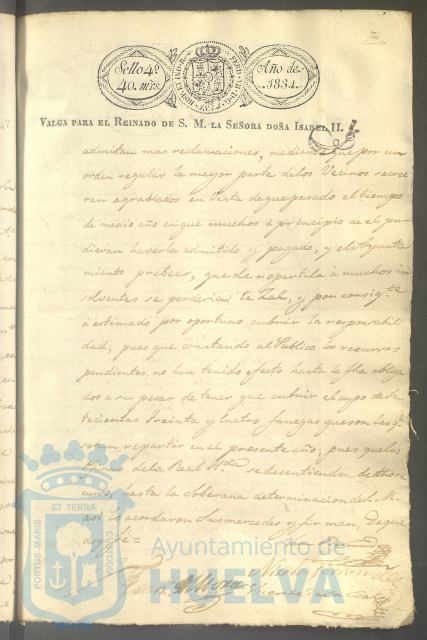 74
Sello 4º
40. mrs.
Año de
1834.
VALGA PARA EL REINADO DE S. M. LA SEÑORA DOÑA ISABEL II.
admitan mas reclamaciones, mediante que por un
orden regular la mayor parte delos Vecinos se cree
ran agrabiados en vista de que pasado el tiempo
de medio año en que muchos á principio de el pu
dieran haverla admitido y pagado, y el Ayunta
miento prebeer, que de repartirla á muchos in
solventes se perderia la Sal, y por consigte
á estimado por oportuno cubrir la responsabili
dad; pues que constando al Publico los recursos
pendientes, no han tenido efecto hasta la fha obliga
dos á su pesar de tener que cubrir el cupo de Se
tecientas Treinta y Cuatro fanegas que son las qe
se han repartir en el presente año; pues que las
de la Real se desentienden de
hasta la Soberana determinacion de S. M.
asi lo acordaron Sus mercedes y firman, De que
doy fe =
PORTUS MARIS
ET TERRÆ
CUSTODIA
Ayuntamiento de
HUELVA